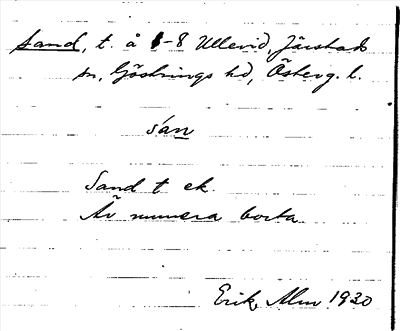 Sand, t. å 1-8 Ullevid, Järstads
sn, Göstrings hd, Österg. l.
sán
Sand t ek.
Är numera borta
Erik Alm 1930